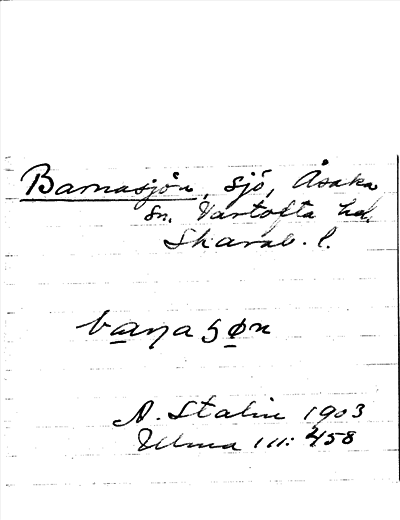 Barnasjön, sjö, Åsaka
sn. Vartofta hd.
Skarab. l.
baŋaʒøn
A. Stalin 1903
Ulma 111: 458